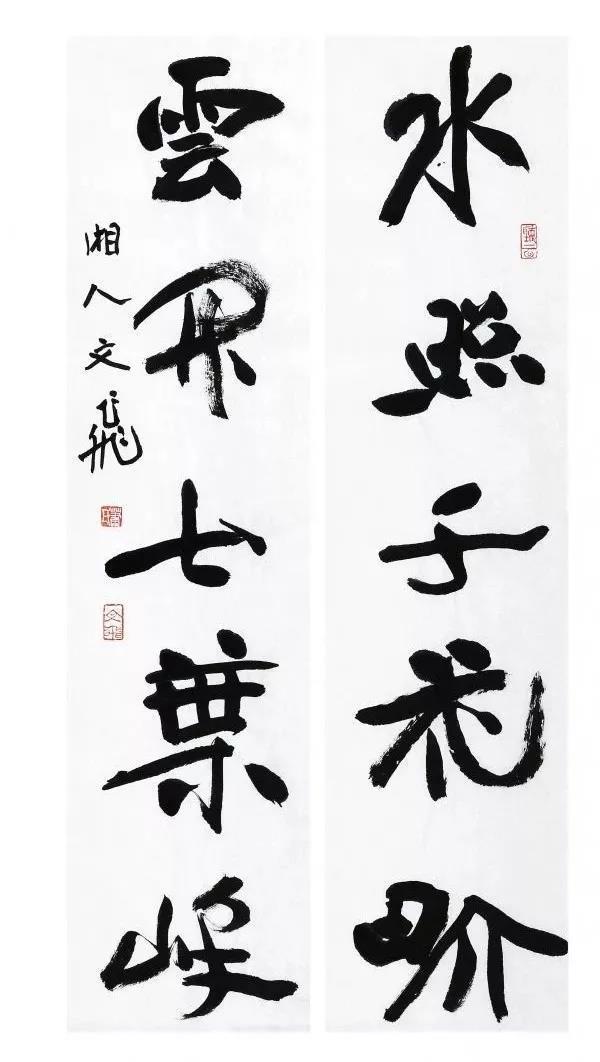 水照千花界
雲開七葉峰
湘人文飛